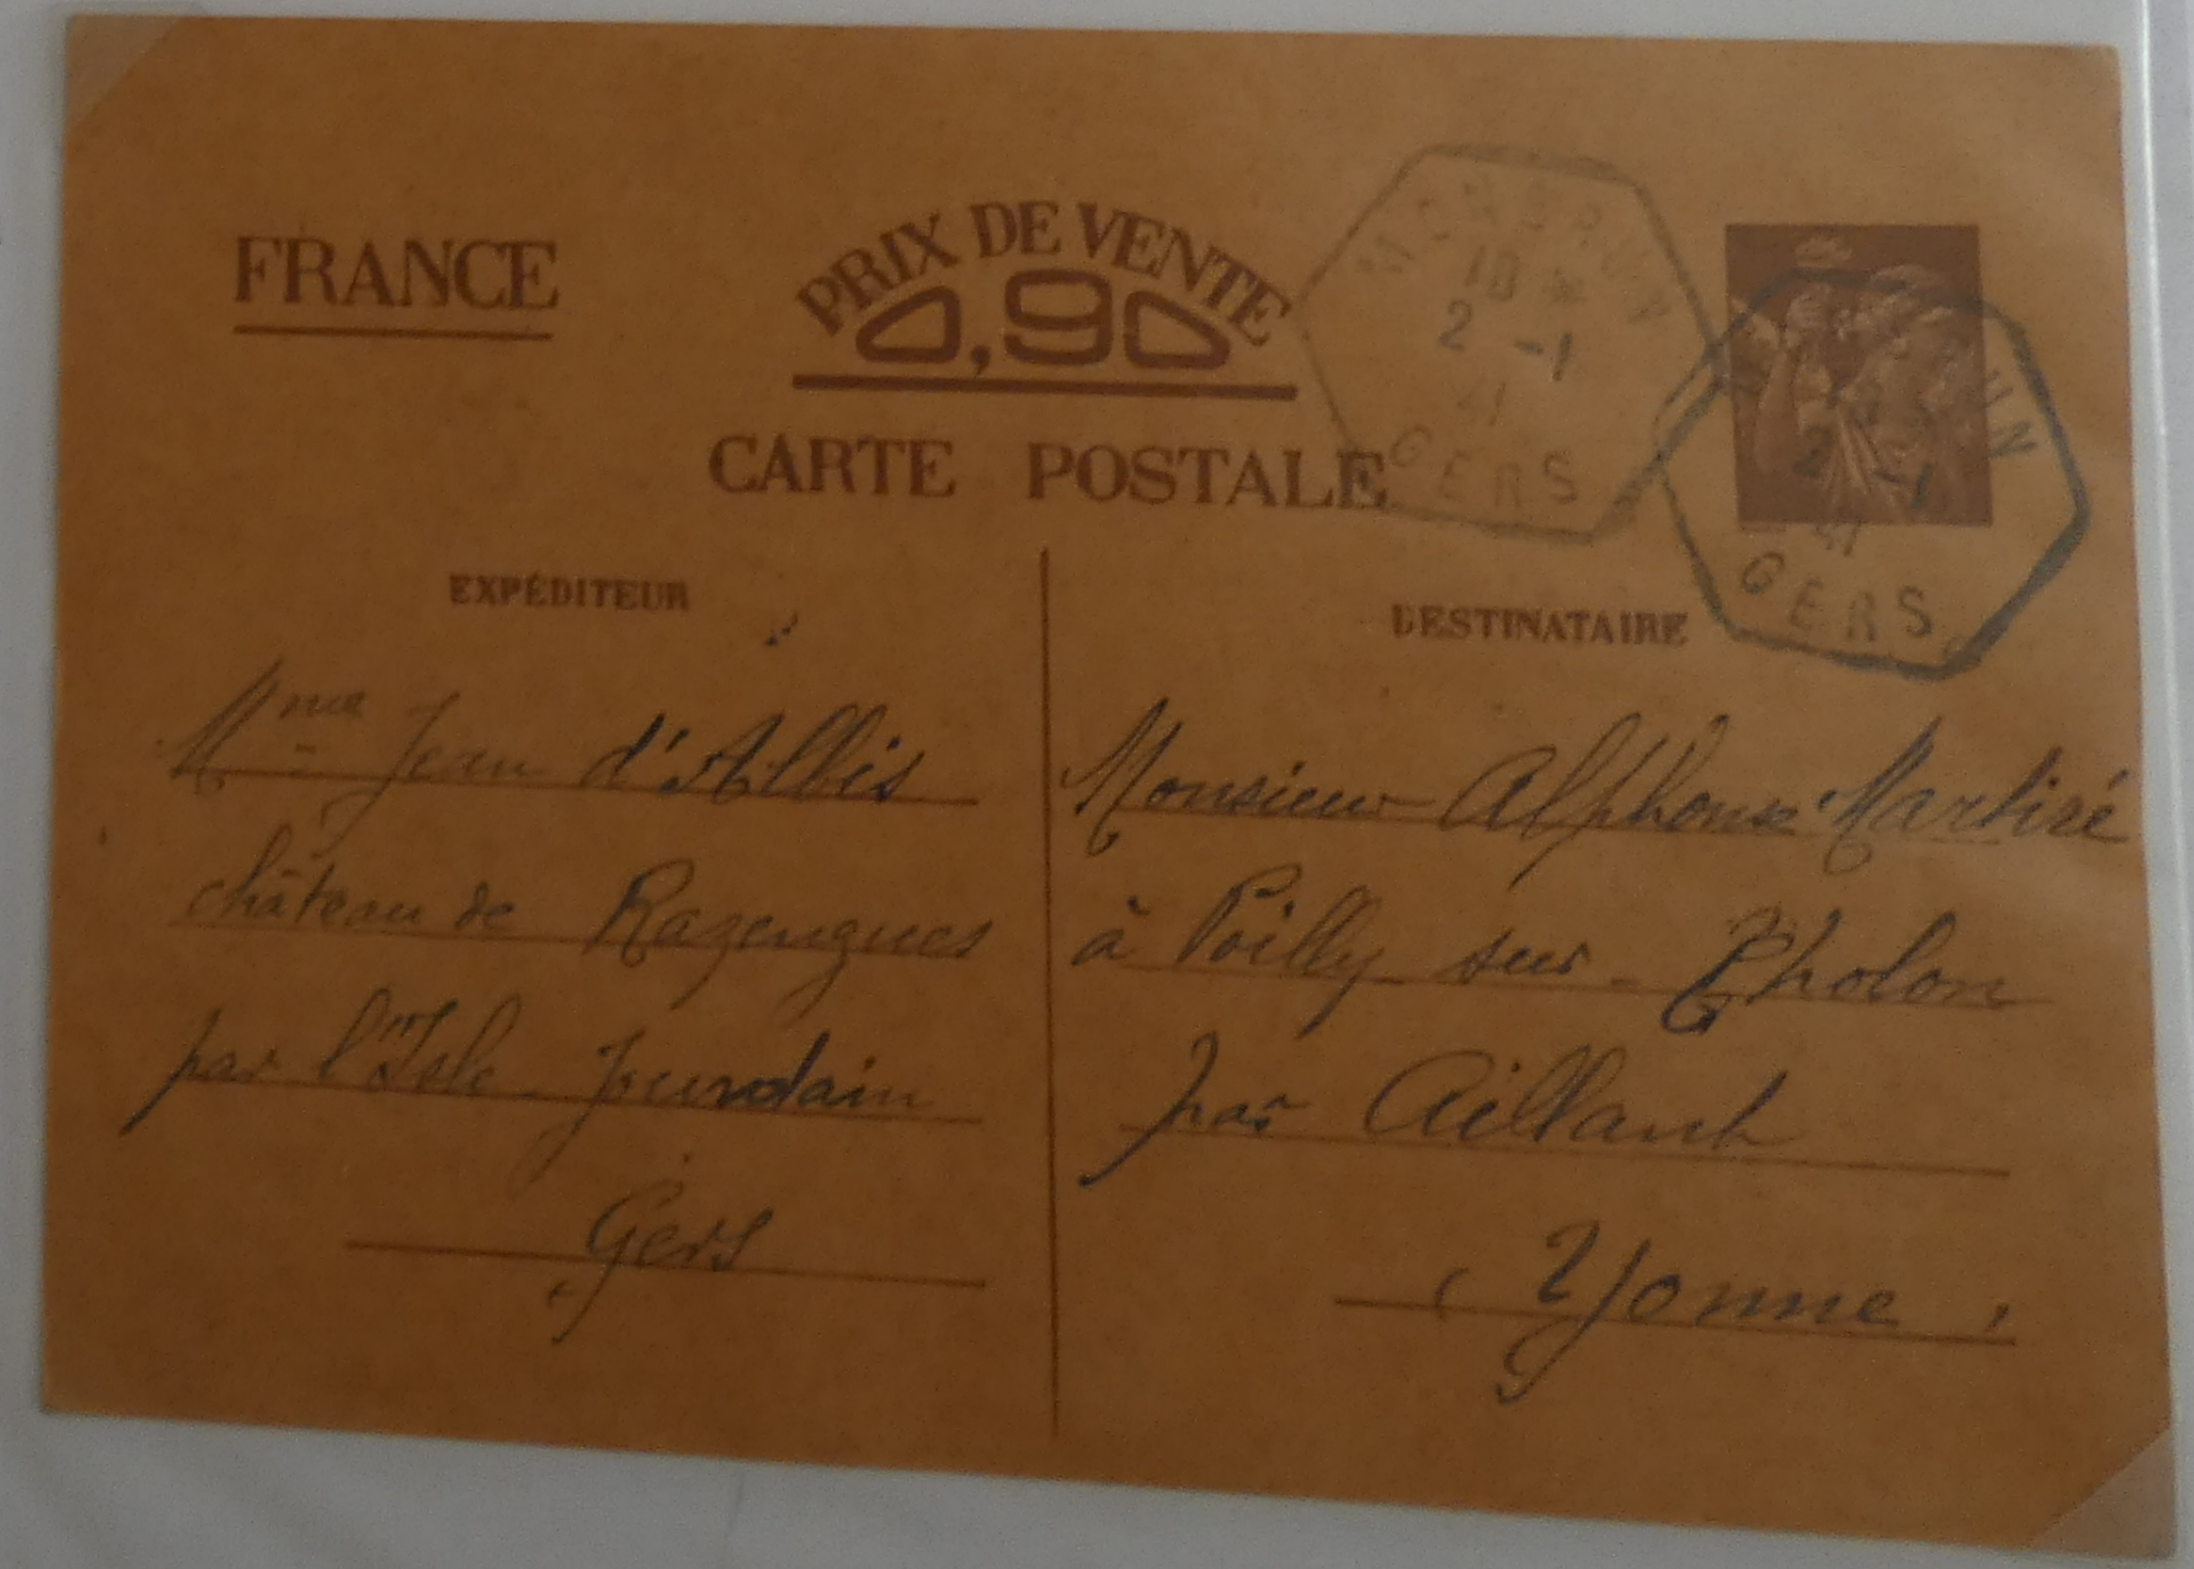 FRANCE
PRIX DE VENTE
0,90
CARTE POSTALE
10
2 -1
41
GERS
2 -1
41
GERS
EXPÉDITEUR
Mme Jean d'Albis
château de Razengues
par l'Isle-Jourdain
Gers
DESTINATAIRE
Monsieur Alphonse Martiré
à Poilly-sur-Tholon
par Aillant
(Yonne)